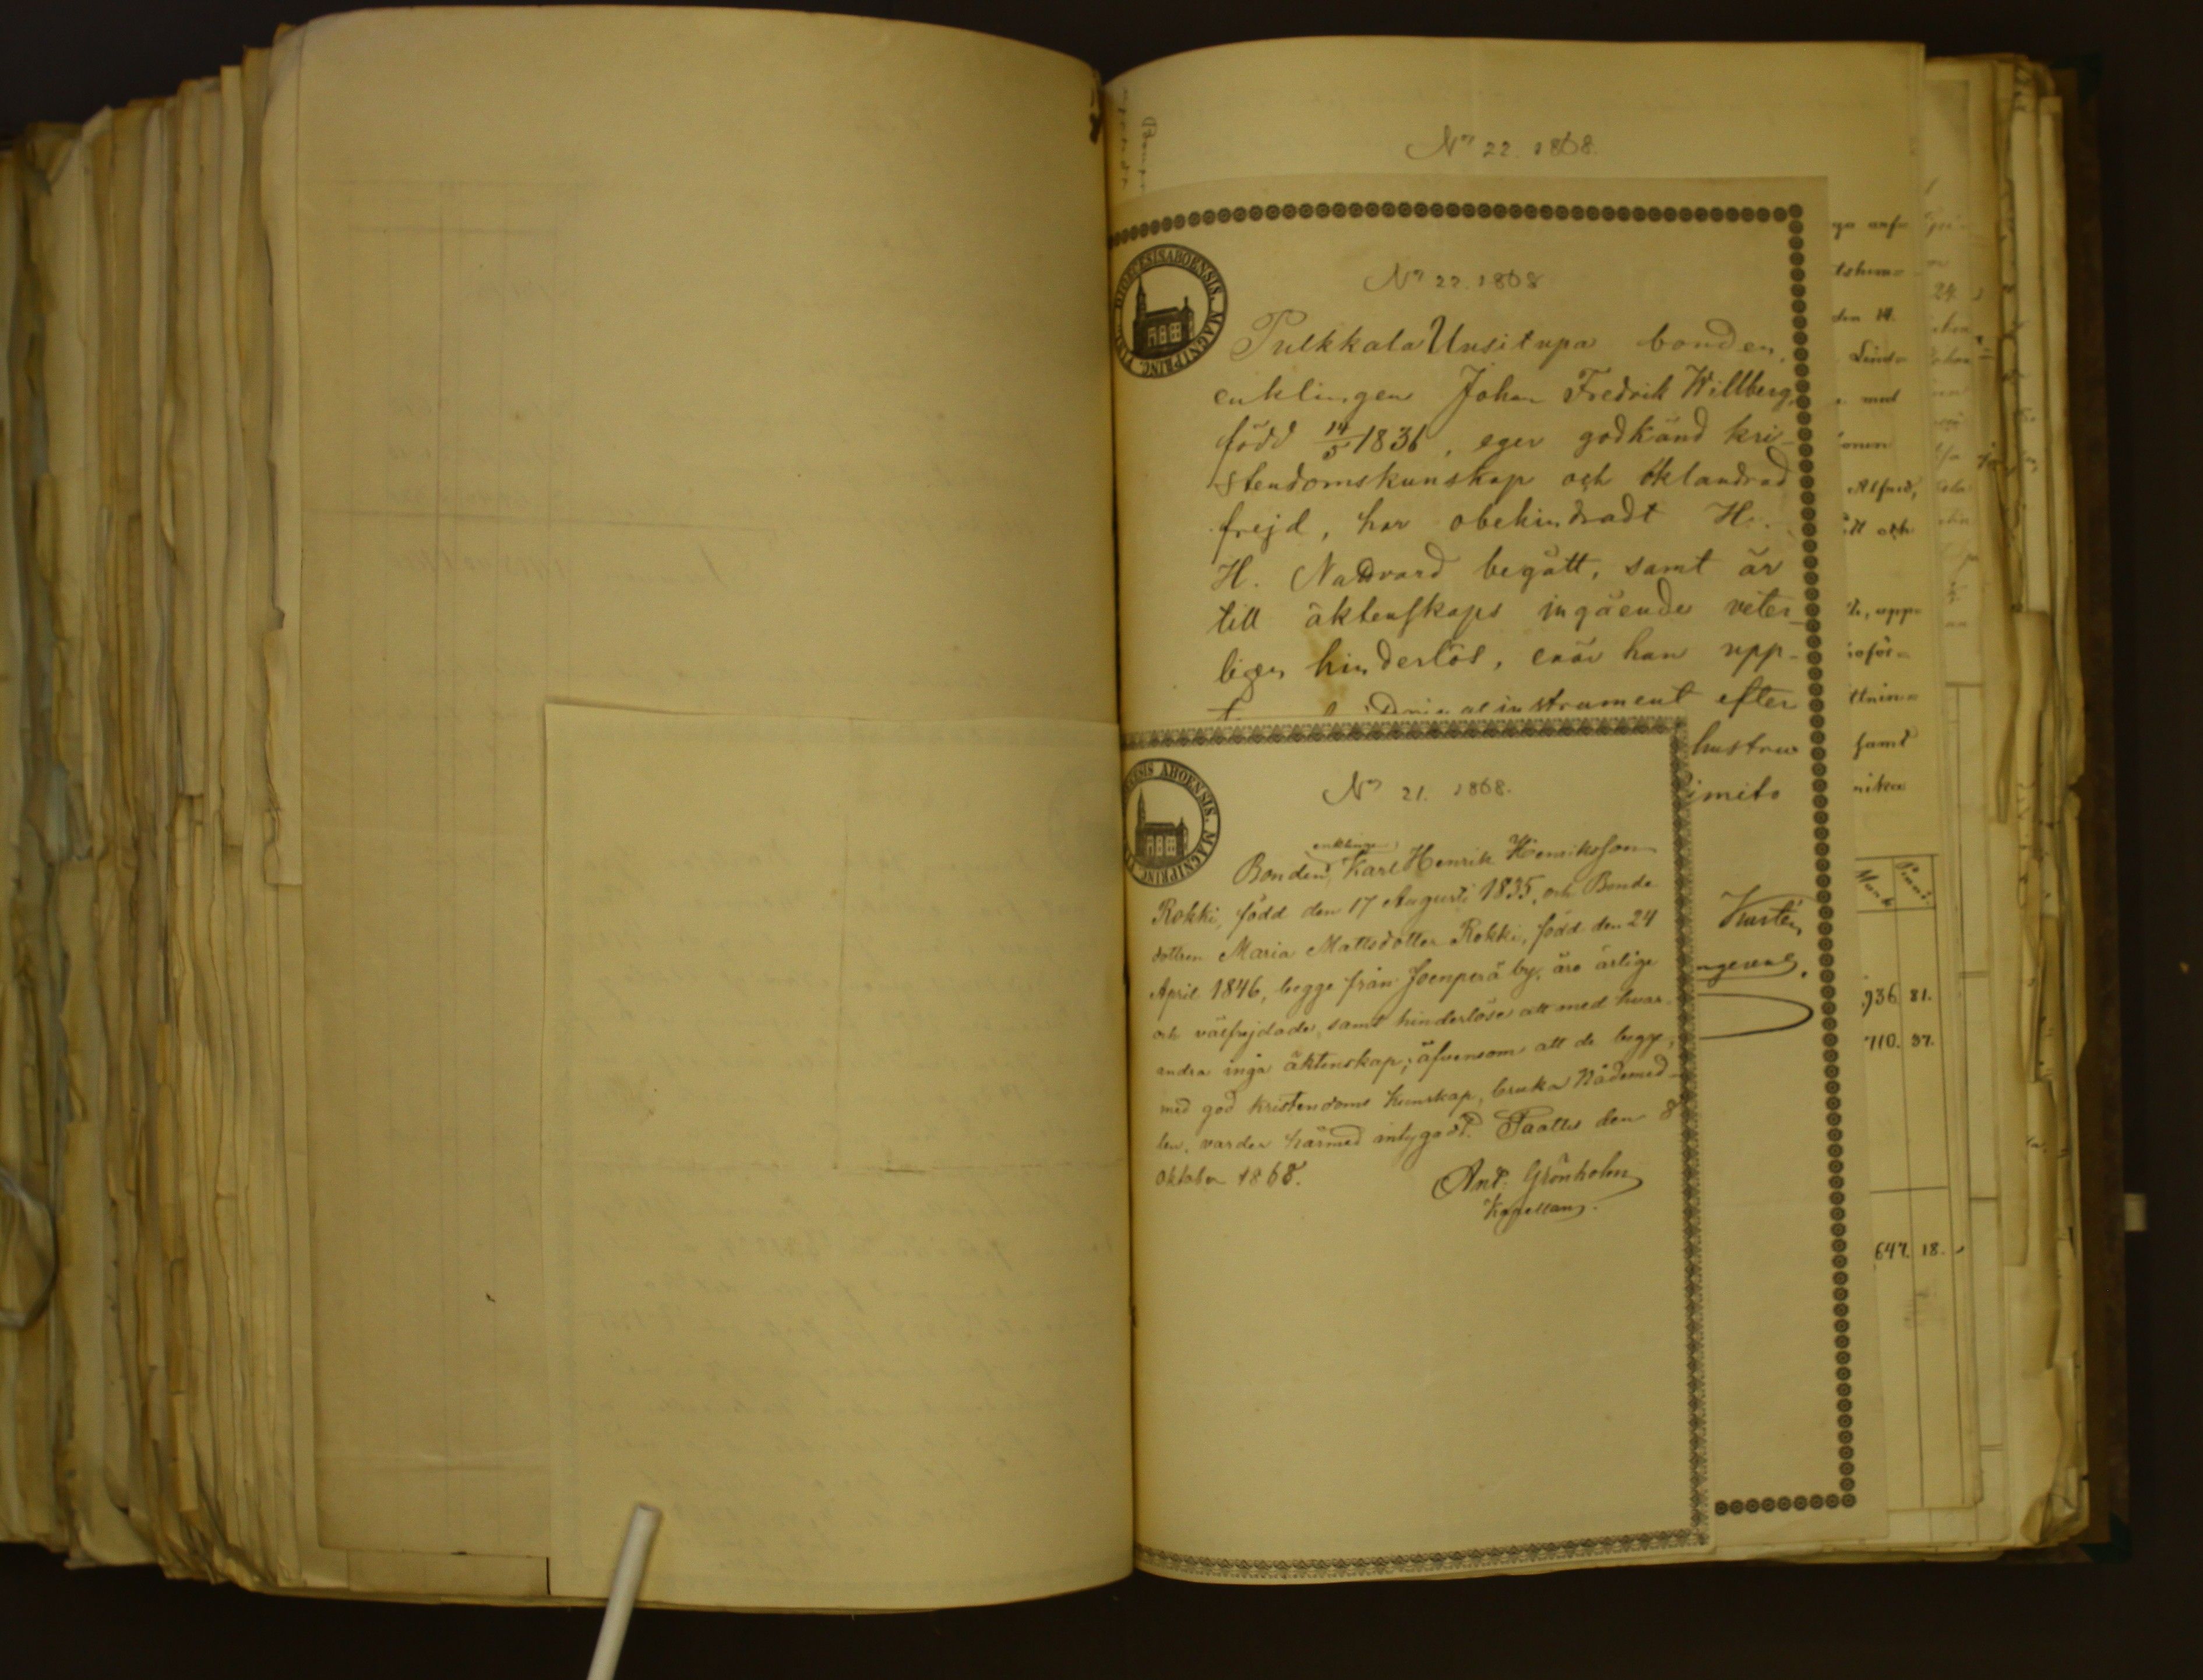 No 22. 1868.
No 22. 1868
DIOECESIS ABOENSIS. MAGNI PRINC. FINL.
Pulkkala Uusitupa bonden,
enklingen Johan Fredrik Willberg,
född 14/5 1836, eger godkänd kri-
stendomskunskap och oklandrad
frejd, har obehindradt H.
H. Nattvard begått, samt är
till äktenskaps ingående veter-
ligen hinderlös, enär han upp-
instrument efter
hustrun
imito
ngewald.
No 21. 1868.
ABOENSIS. MAGNI PRINC.
enklingen
Bonden, Karl Henrik Henriksson
Rokki, född den 17 Augusti 1835, och Bonde
dottren Maria Mattsdotter Rokki, född den 24
April 1846, begge från Joenperä by, äro ärlige
och välfrejdade, samt hinderlöse att med hvar-
andra ingå äktenskap; äfvensom att de begge,
med god kristendoms kunskap, bruka Nådemed-
len, varder härmed intygadt. Paattis den 8
Oktober 1868.
Ant. Grönholm
Kapellan.
den 14.
med
Alfred,
samt
Mark
936. 81.
710. 37.
647. 18.